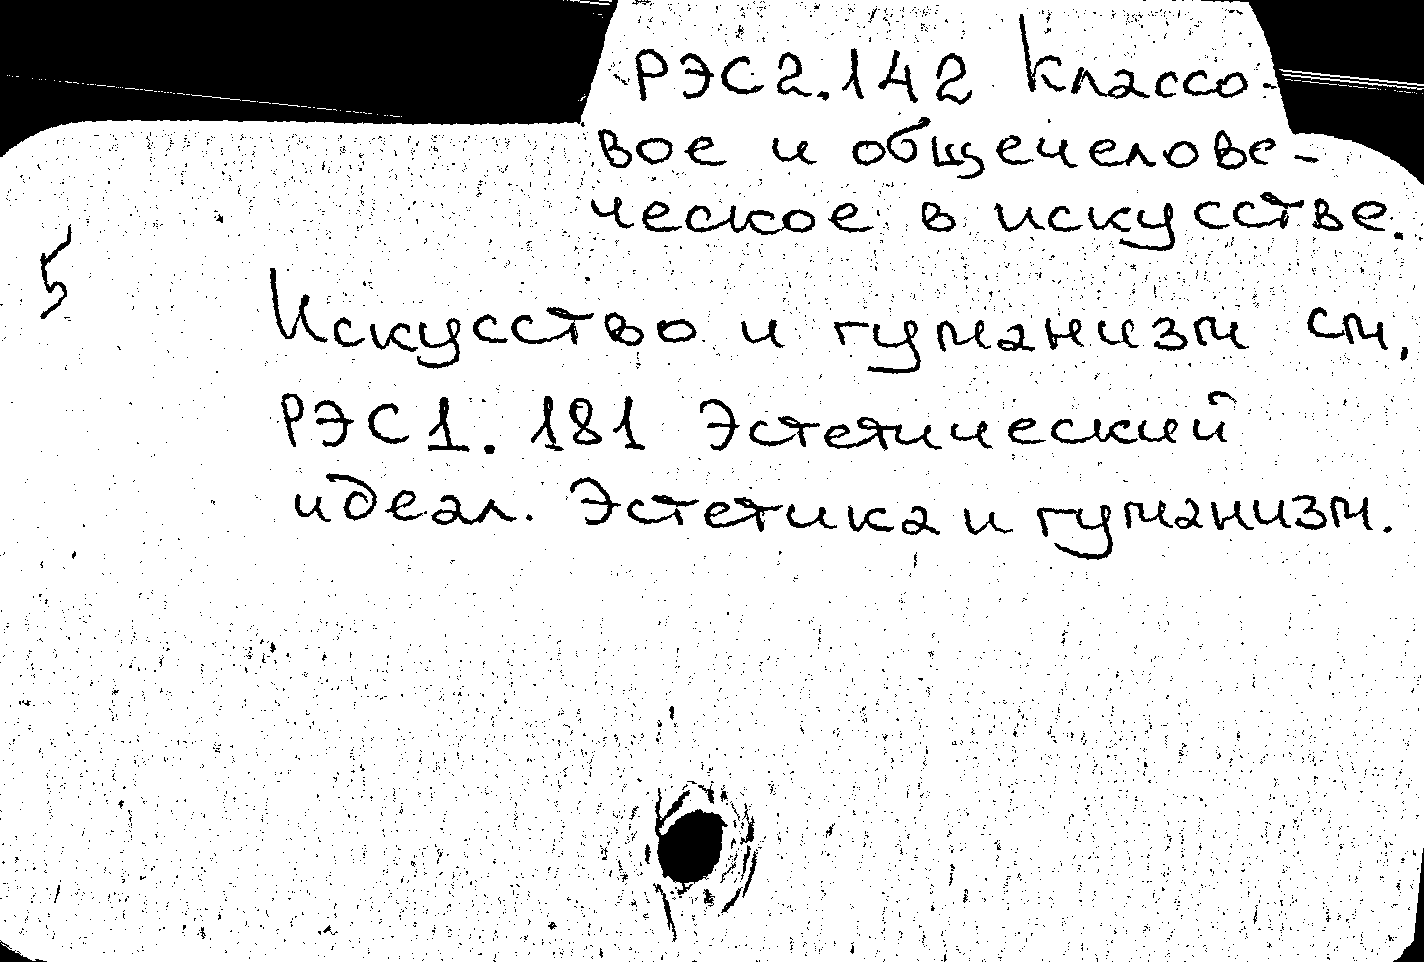 РЭС2.142 Классо-
вое и общечелове-
ческое в искусстве.
5
Искусство и гуманизм см,
РЭС1.181 Эстетический
идеал. Эстетика и гуманизм.